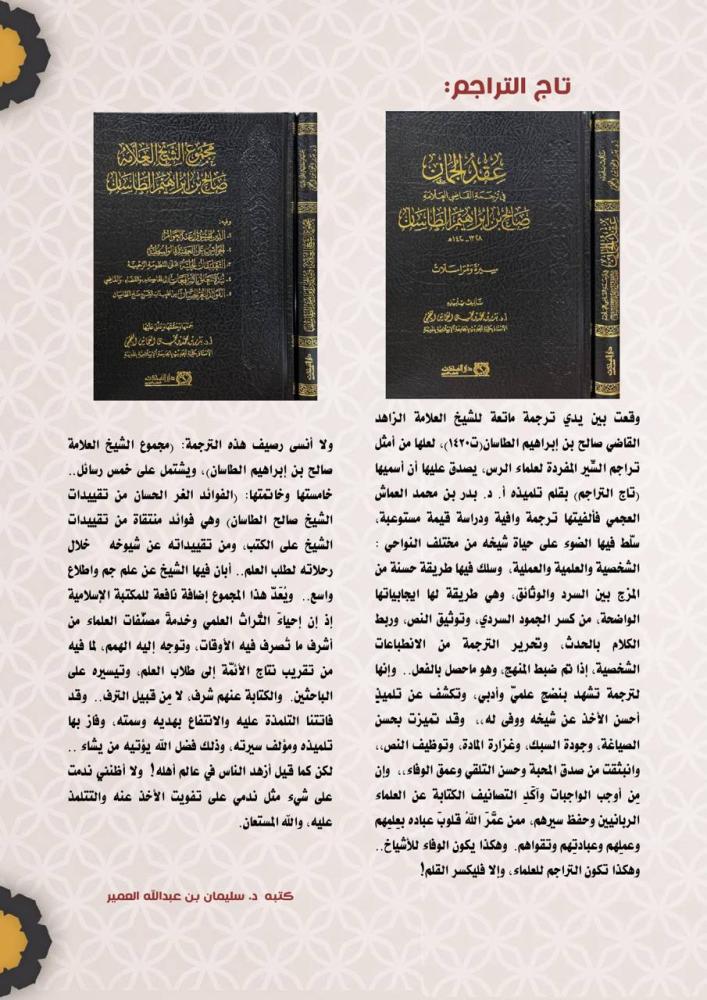 تاج التراجم:
عقد الجمان
في ترجمة القاضي العلامة
صالح بن إبراهيم الطاسان
١٣٣٨-١٤٢٠هـ
سيرة ومراسلات
مجموع الشيخ العلامة
صالح بن إبراهيم الطاسان
وفيه:
وقعت بين يدي ترجمة ماتعة للشيخ العلامة الزاهد
القاضي صالح بن إبراهيم الطاسان(ت١٤٢٠)، لعلها من أمثل
تراجم السِّير المفردة لعلماء الرس، يصدق عليها أن أسميها
(تاج التراجم) بقلم تلميذه أ. د. بدر بن محمد العماش
العجمي فألفيتها ترجمة وافية ودراسة قيمة مستوعبة،
سلّط فيها الضوء على حياة شيخه من مختلف النواحي :
الشخصية والعلمية والعملية، وسلك فيها طريقة حسنة من
المزج بين السرد والوثائق، وهي طريقة لها ايجابياتها
الواضحة، من كسر الجمود السردي، وتوثيق النص، وربط
الكلام بالحدث، وتحرير الترجمة من الانطباعات
الشخصية، إذا تم ضبط المنهج، وهو ماحصل بالفعل.. وإنها
لترجمة تشهد بنضج علميّ وأدبي، وتكشف عن تلميذٍ
أحسن الأخذ عن شيخه ووفى له،، وقد تميزت بحسن
الصياغة، وجودة السبك، وغزارة المادة، وتوظيف النص،،
وانبثقت من صدق المحبة وحسن التلقي وعمق الوفاء،، وإن
مِن أوجب الواجبات وآكَدِ التصانيف الكتابة عن العلماء
الربانيين وحفظ سيرهم، ممن عمَّرَ اللهُ قلوبَ عباده بعِلمِهم
وعملِهم وعبادتِهم وتقواهم. وهكذا يكون الوفاء للأشياخ..
وهكذا تكون التراجم للعلماء، وإلا فليكسر القلم!
ولا أنسى رصيف هذه الترجمة: (مجموع الشيخ العلامة
صالح بن إبراهيم الطاسان)، ويشتمل على خمس رسائل..
خامستها وخاتمتها: (الفوائد الغر الحسان من تقييدات
الشيخ صالح الطاسان) وهي فوائد منتقاة من تقييدات
الشيخ على الكتب، ومن تقييداته عن شيوخه خلال
رحلاته لطلب العلم.. أبان فيها الشيخ عن علم جم واطلاع
واسع.. ويُعَدّ هذا المجموع إضافة نافعة للمكتبة الإسلامية
إذ إن إحياءَ التُّراث العلمي وخدمةَ مصنَّفات العلماء من
أشرف ما تُصرف فيه الأوقات، وتوجه إليه الهمم، لما فيه
من تقريب نتاج الأئمّة إلى طلاب العلم، وتيسيره على
الباحثين. والكتابة عنهم شرف، لا مِن قبيل الترف.. وقد
فاتتنا التلمذة عليه والانتفاع بهديه وسمته، وفاز بها
تلميذه ومؤلف سيرته، وذلك فضل الله يؤتيه من يشاء ..
لكن كما قيل أزهد الناس في عالم أهله! ولا أظنني ندمت
على شيء مثل ندمي على تفويت الأخذ عنه والتتلمذ
عليه، والله المستعان.
كتبه د. سليمان بن عبدالله العمير